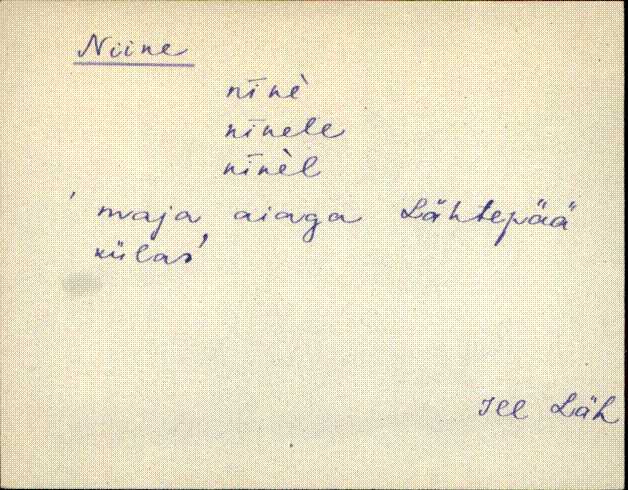 Niine
nīnè
nīnele
nīnèl
' maja aiaga Lähtepää
külas'
Jll Läh